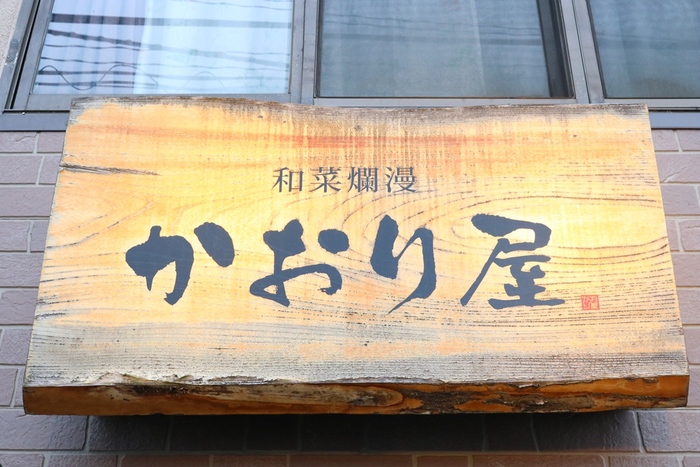 和菜爛漫
かおり屋